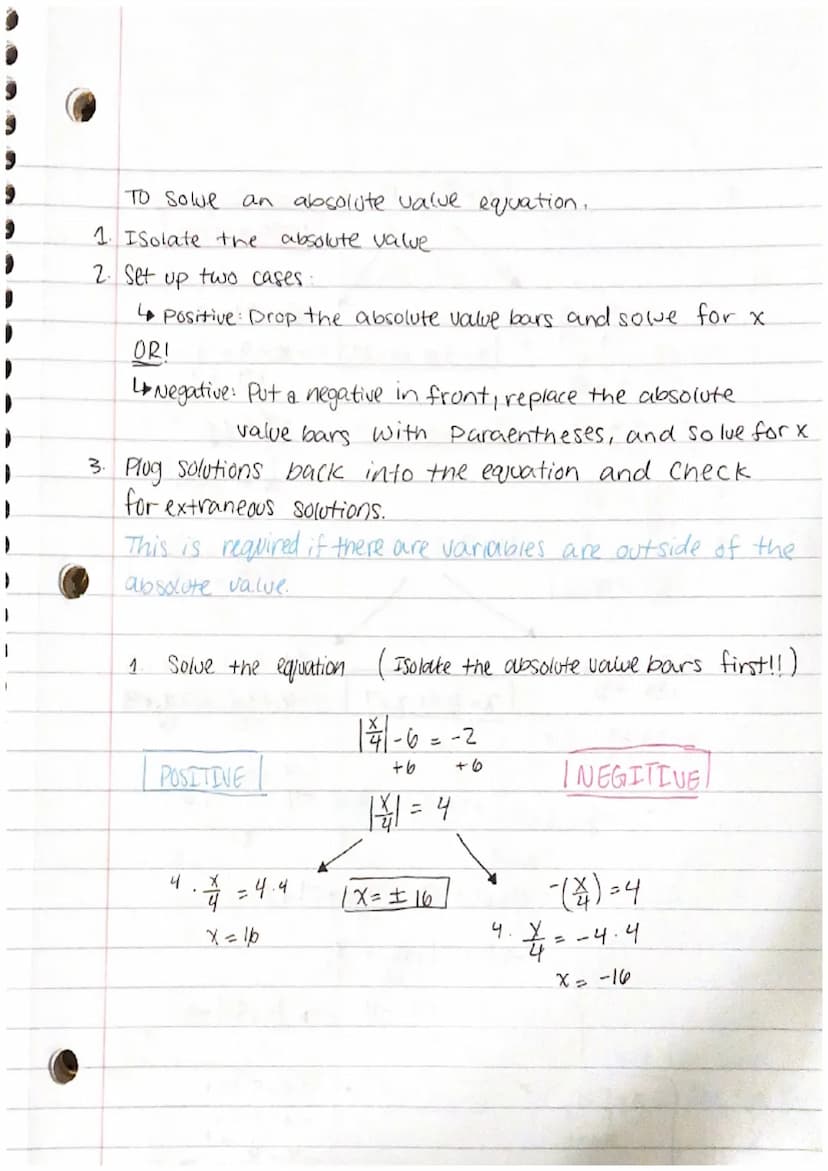 TO Solve an absolute value equation.
1. Isolate the absolute value
2. Set up two cases:
↳ Positive: Drop the absolute value bars and solve for x
OR!
↳ Negative: Put a negative in front, replace the absolute
value bars with Paraentheses, and solve for x
3. Plug solutions back into the equation and check
for extraneous solutions.
This is required if there are variables are outside of the
absolute value.
1. Solve the equation (Isolate the absolute value bars first!!)
|x/4| - 6 = -2
+6 +6
POSITIVE
NEGITIVE
|x/4| = 4
4 · x/4 = 4·4
x = ± 16
-(x/4) = 4
x = 16
4 · x/4 = -4·4
x = -16